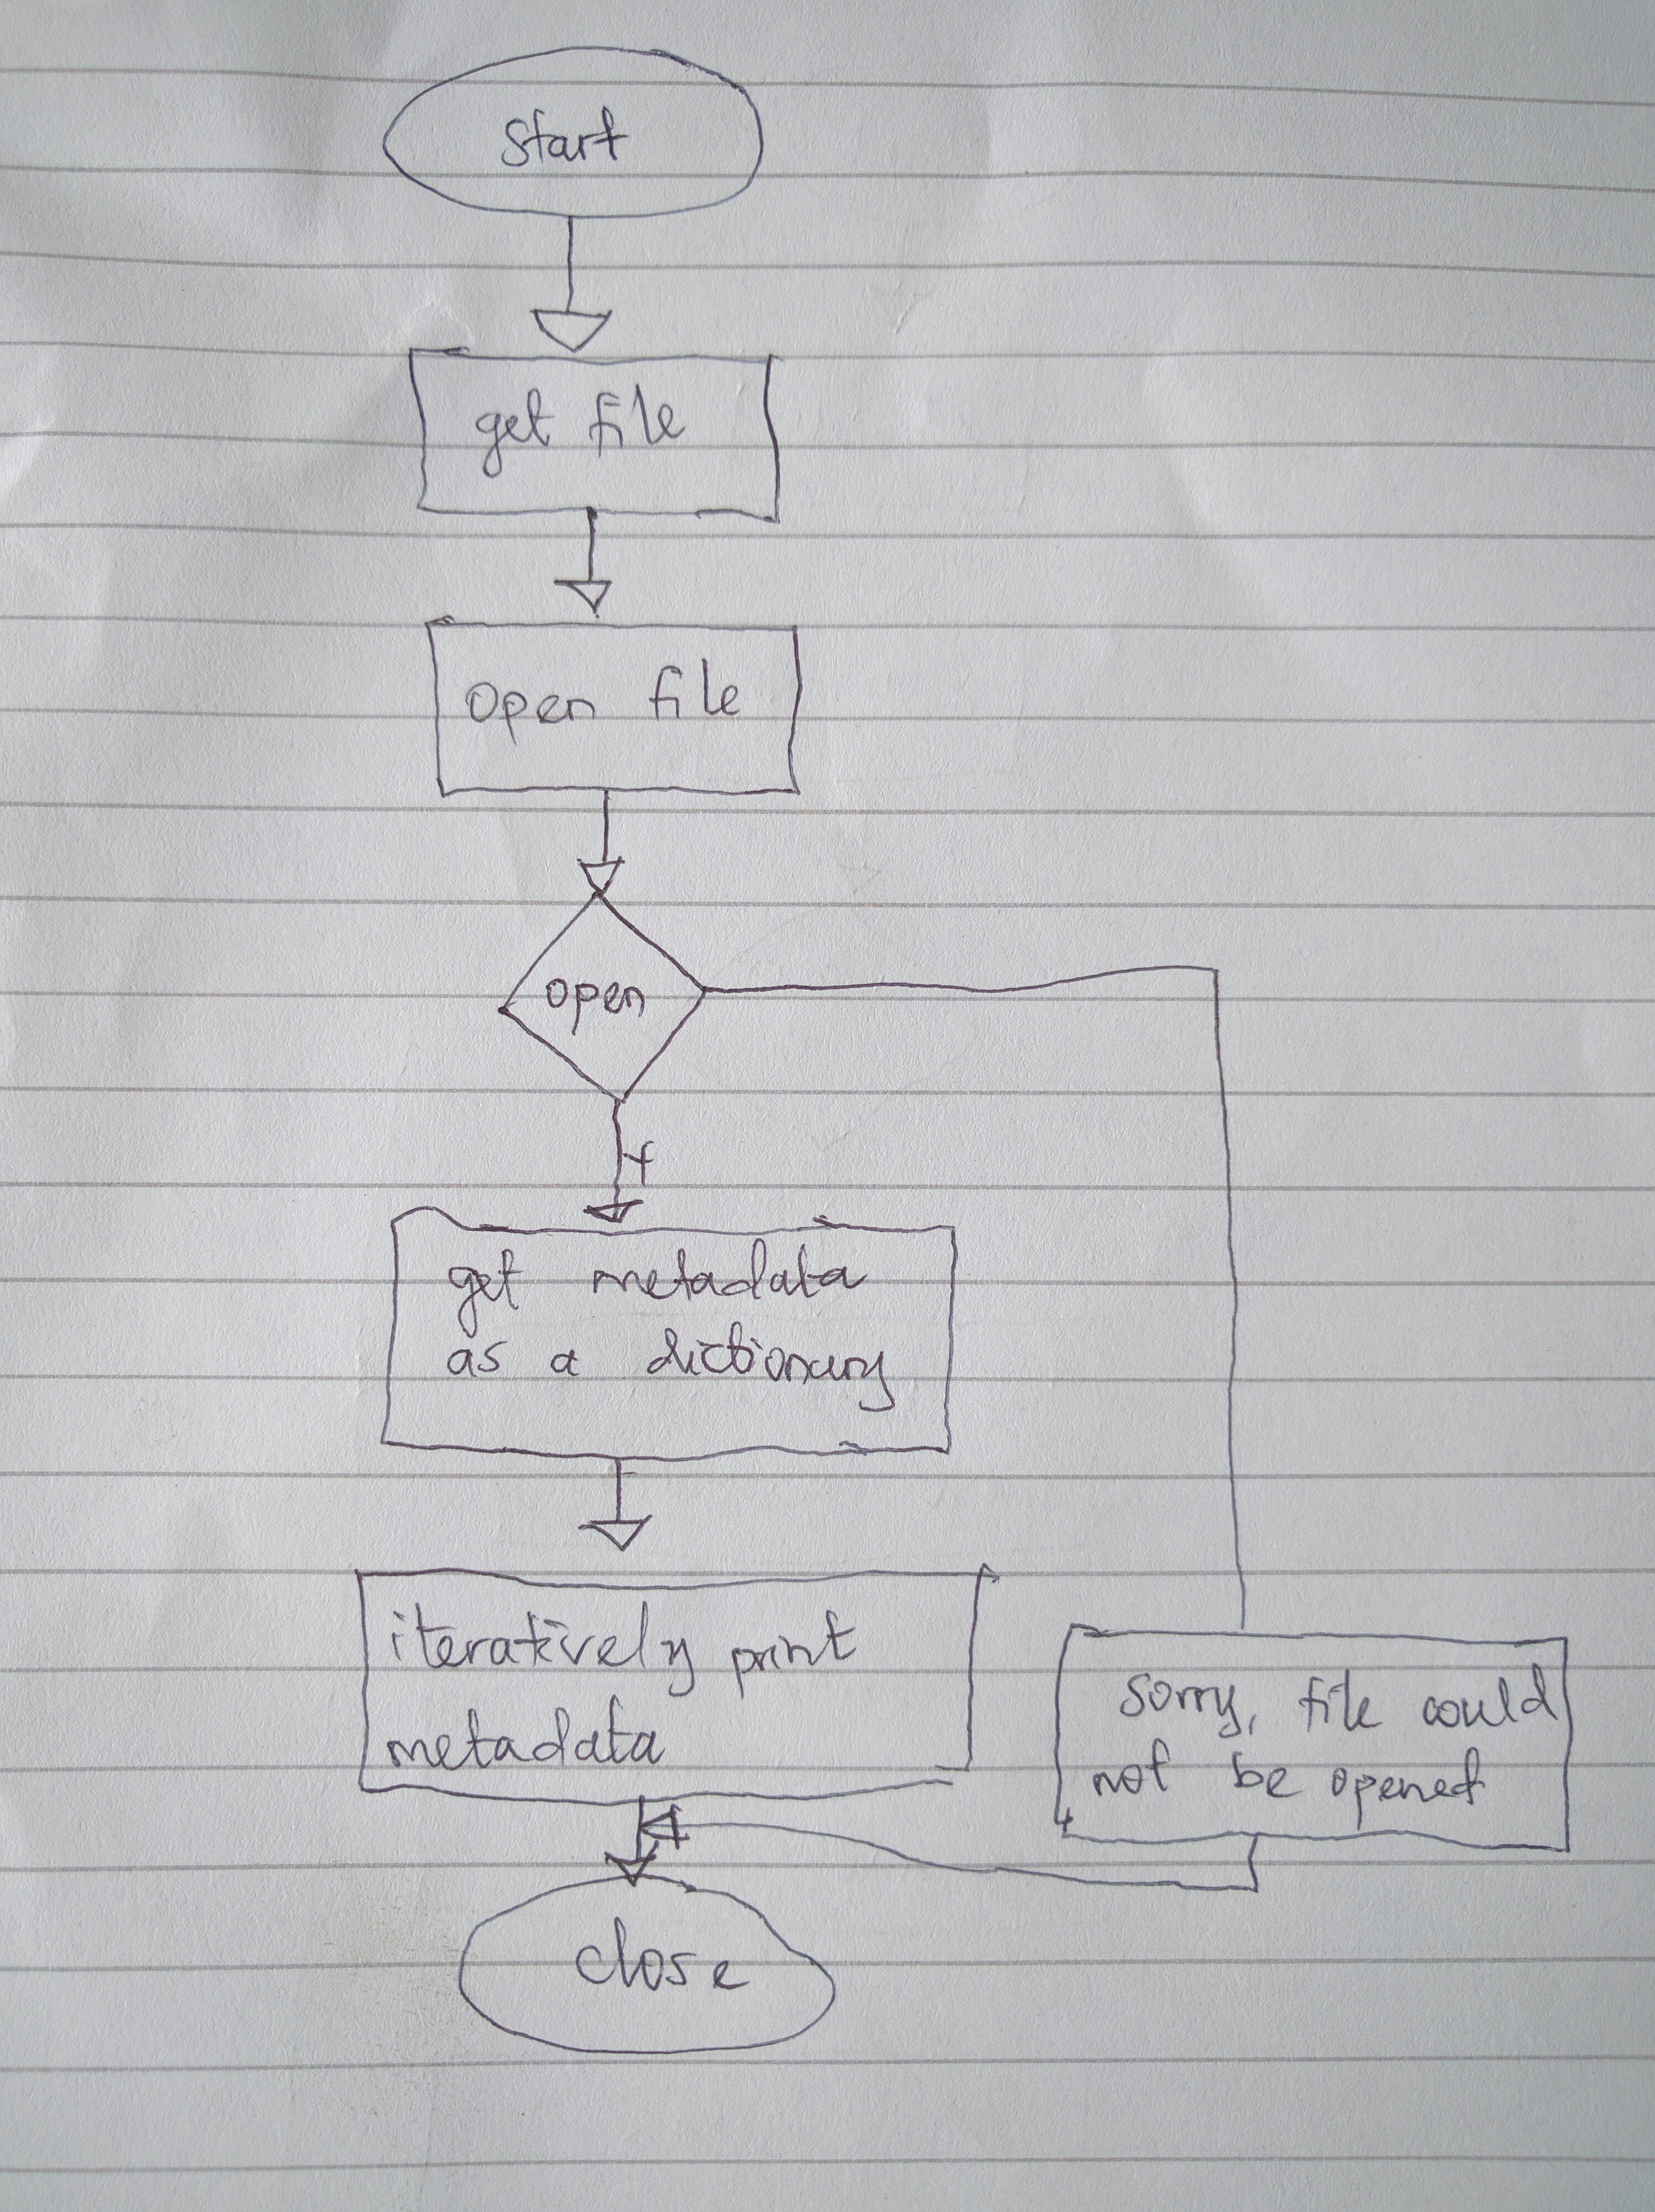 Start
get file
open file
open
get metadata
as a dictionary
iteratively print
metadata
Sorry, file could
not be opened
close